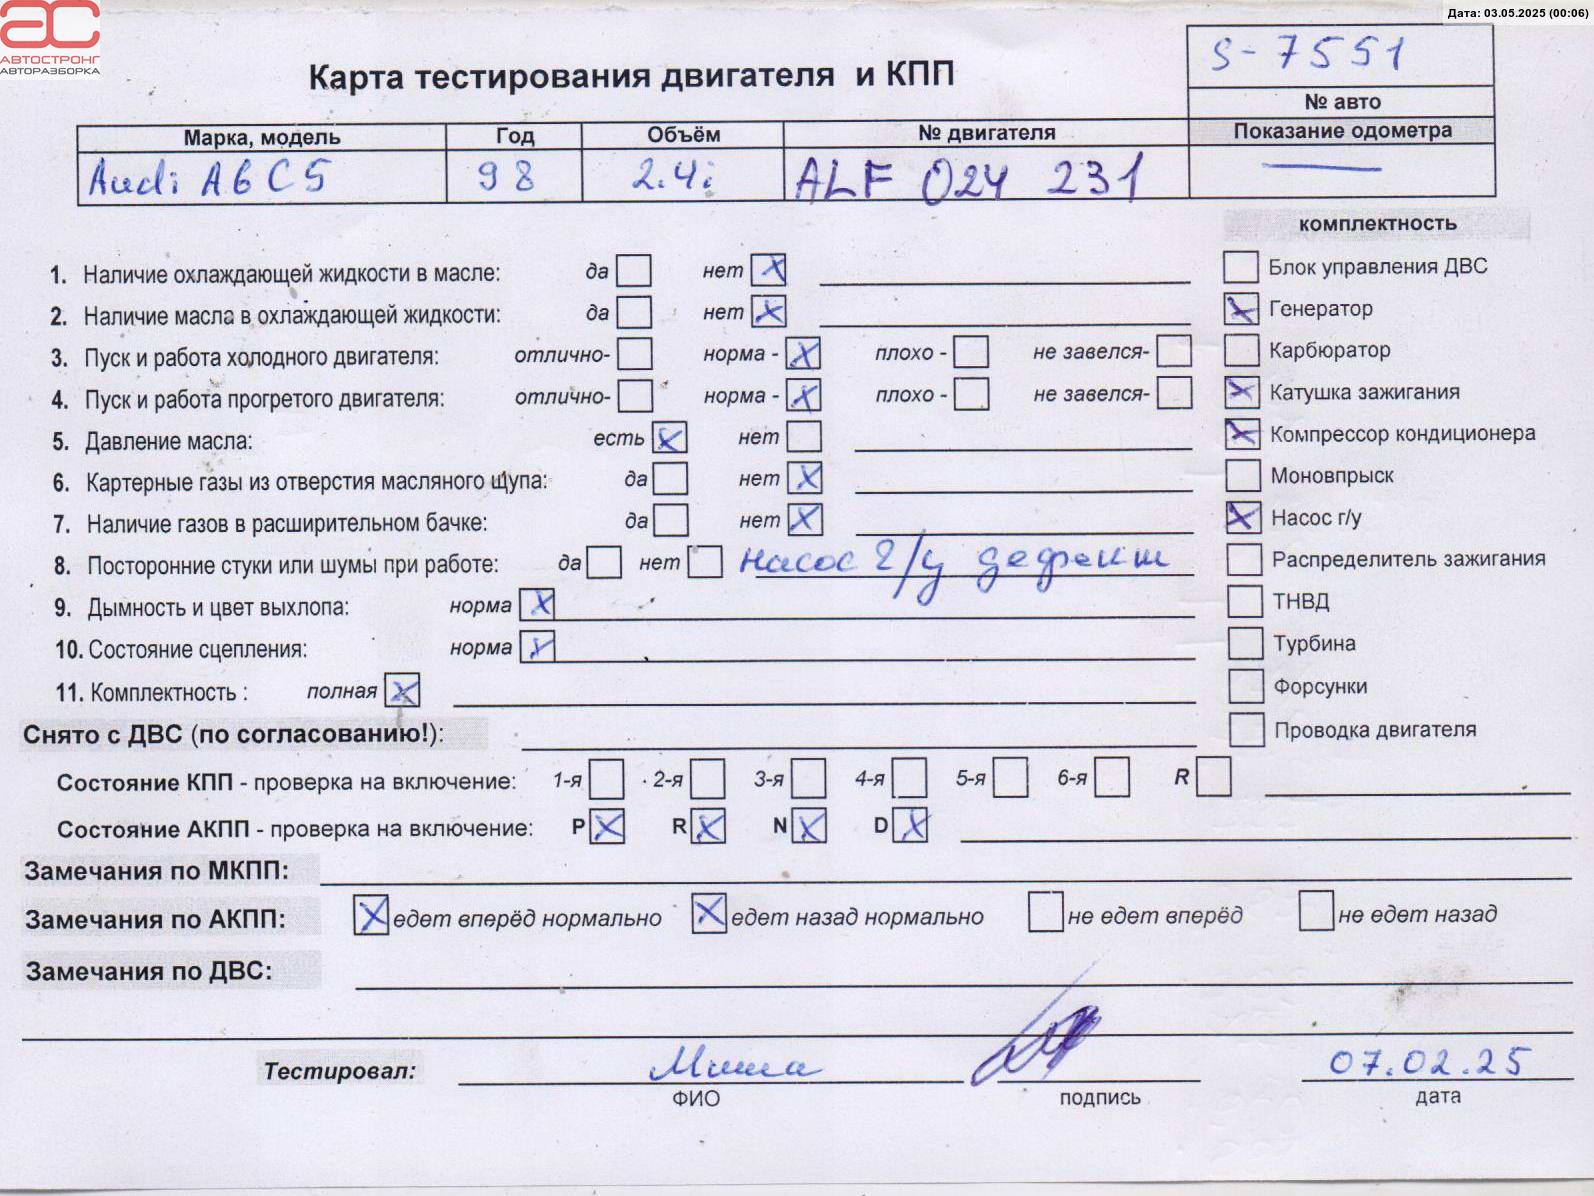 Дата: 03.05.2025 (00:06)
АВТОСТРОНГ
АВТОРАЗБОРКА
Карта тестирования двигателя и КПП
S-7551
№ авто
Марка, модель Год Объём № двигателя Показание одометра
Audi A6 C5 98 2.4i ALF 024 231 —
комплектность
1. Наличие охлаждающей жидкости в масле: да нет X
Блок управления ДВС
2. Наличие масла в охлаждающей жидкости: да нет X
X Генератор
3. Пуск и работа холодного двигателя: отлично- норма - X плохо - не завелся-
Карбюратор
4. Пуск и работа прогретого двигателя: отлично- норма - X плохо - не завелся-
X Катушка зажигания
5. Давление масла: есть X нет
X Компрессор кондиционера
6. Картерные газы из отверстия масляного щупа: да нет X
Моновпрыск
7. Наличие газов в расширительном бачке: да нет X
X Насос г/у
8. Посторонние стуки или шумы при работе: да нет насос г/у дефект
Распределитель зажигания
9. Дымность и цвет выхлопа: норма X
ТНВД
10. Состояние сцепления: норма X
Турбина
11. Комплектность : полная X
Форсунки
Снято с ДВС (по согласованию!):
Проводка двигателя
Состояние КПП - проверка на включение: 1-я 2-я 3-я 4-я 5-я 6-я R
Состояние АКПП - проверка на включение: P X R X N X D X
Замечания по МКПП:
Замечания по АКПП: X едет вперёд нормально X едет назад нормально не едет вперёд не едет назад
Замечания по ДВС:
Тестировал: Миша 07.02.25
ФИО подпись дата